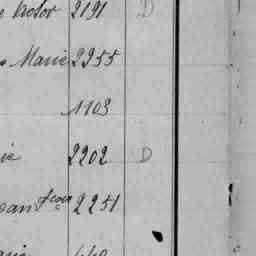 Victor 2191 D
Marie 2255
1103
2202 D
ean fcois 2251